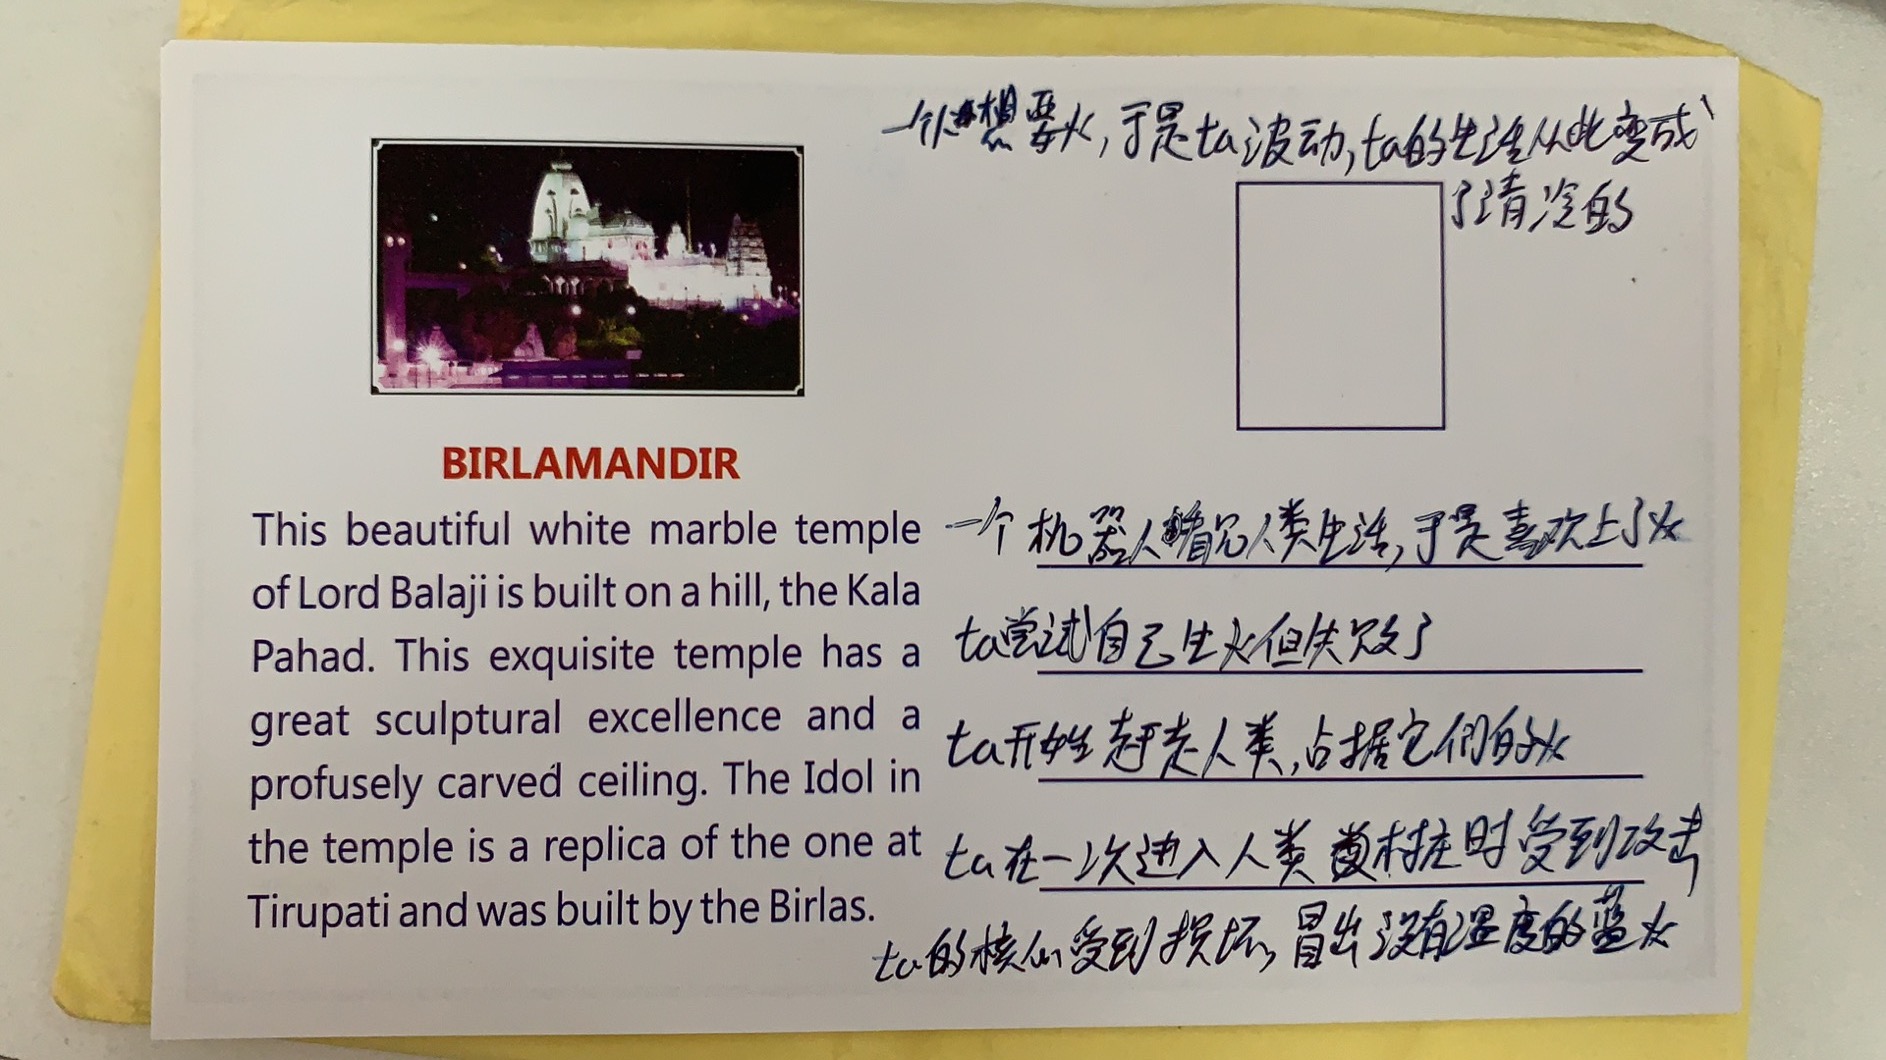 一个人想要火,于是ta波动,ta的生活从此变成
了清冷的
BIRLAMANDIR
This beautiful white marble temple
of Lord Balaji is built on a hill, the Kala
Pahad. This exquisite temple has a
great sculptural excellence and a
profusely carved ceiling. The Idol in
the temple is a replica of the one at
Tirupati and was built by the Birlas.
一个机器人看见人类生活,于是喜欢上了火
ta尝试自己生火但失败了
ta开始赶走人类,占据它们的火
ta在一次进入人类村庄时受到攻击
ta的核心受到损坏,冒出没有温度的蓝火